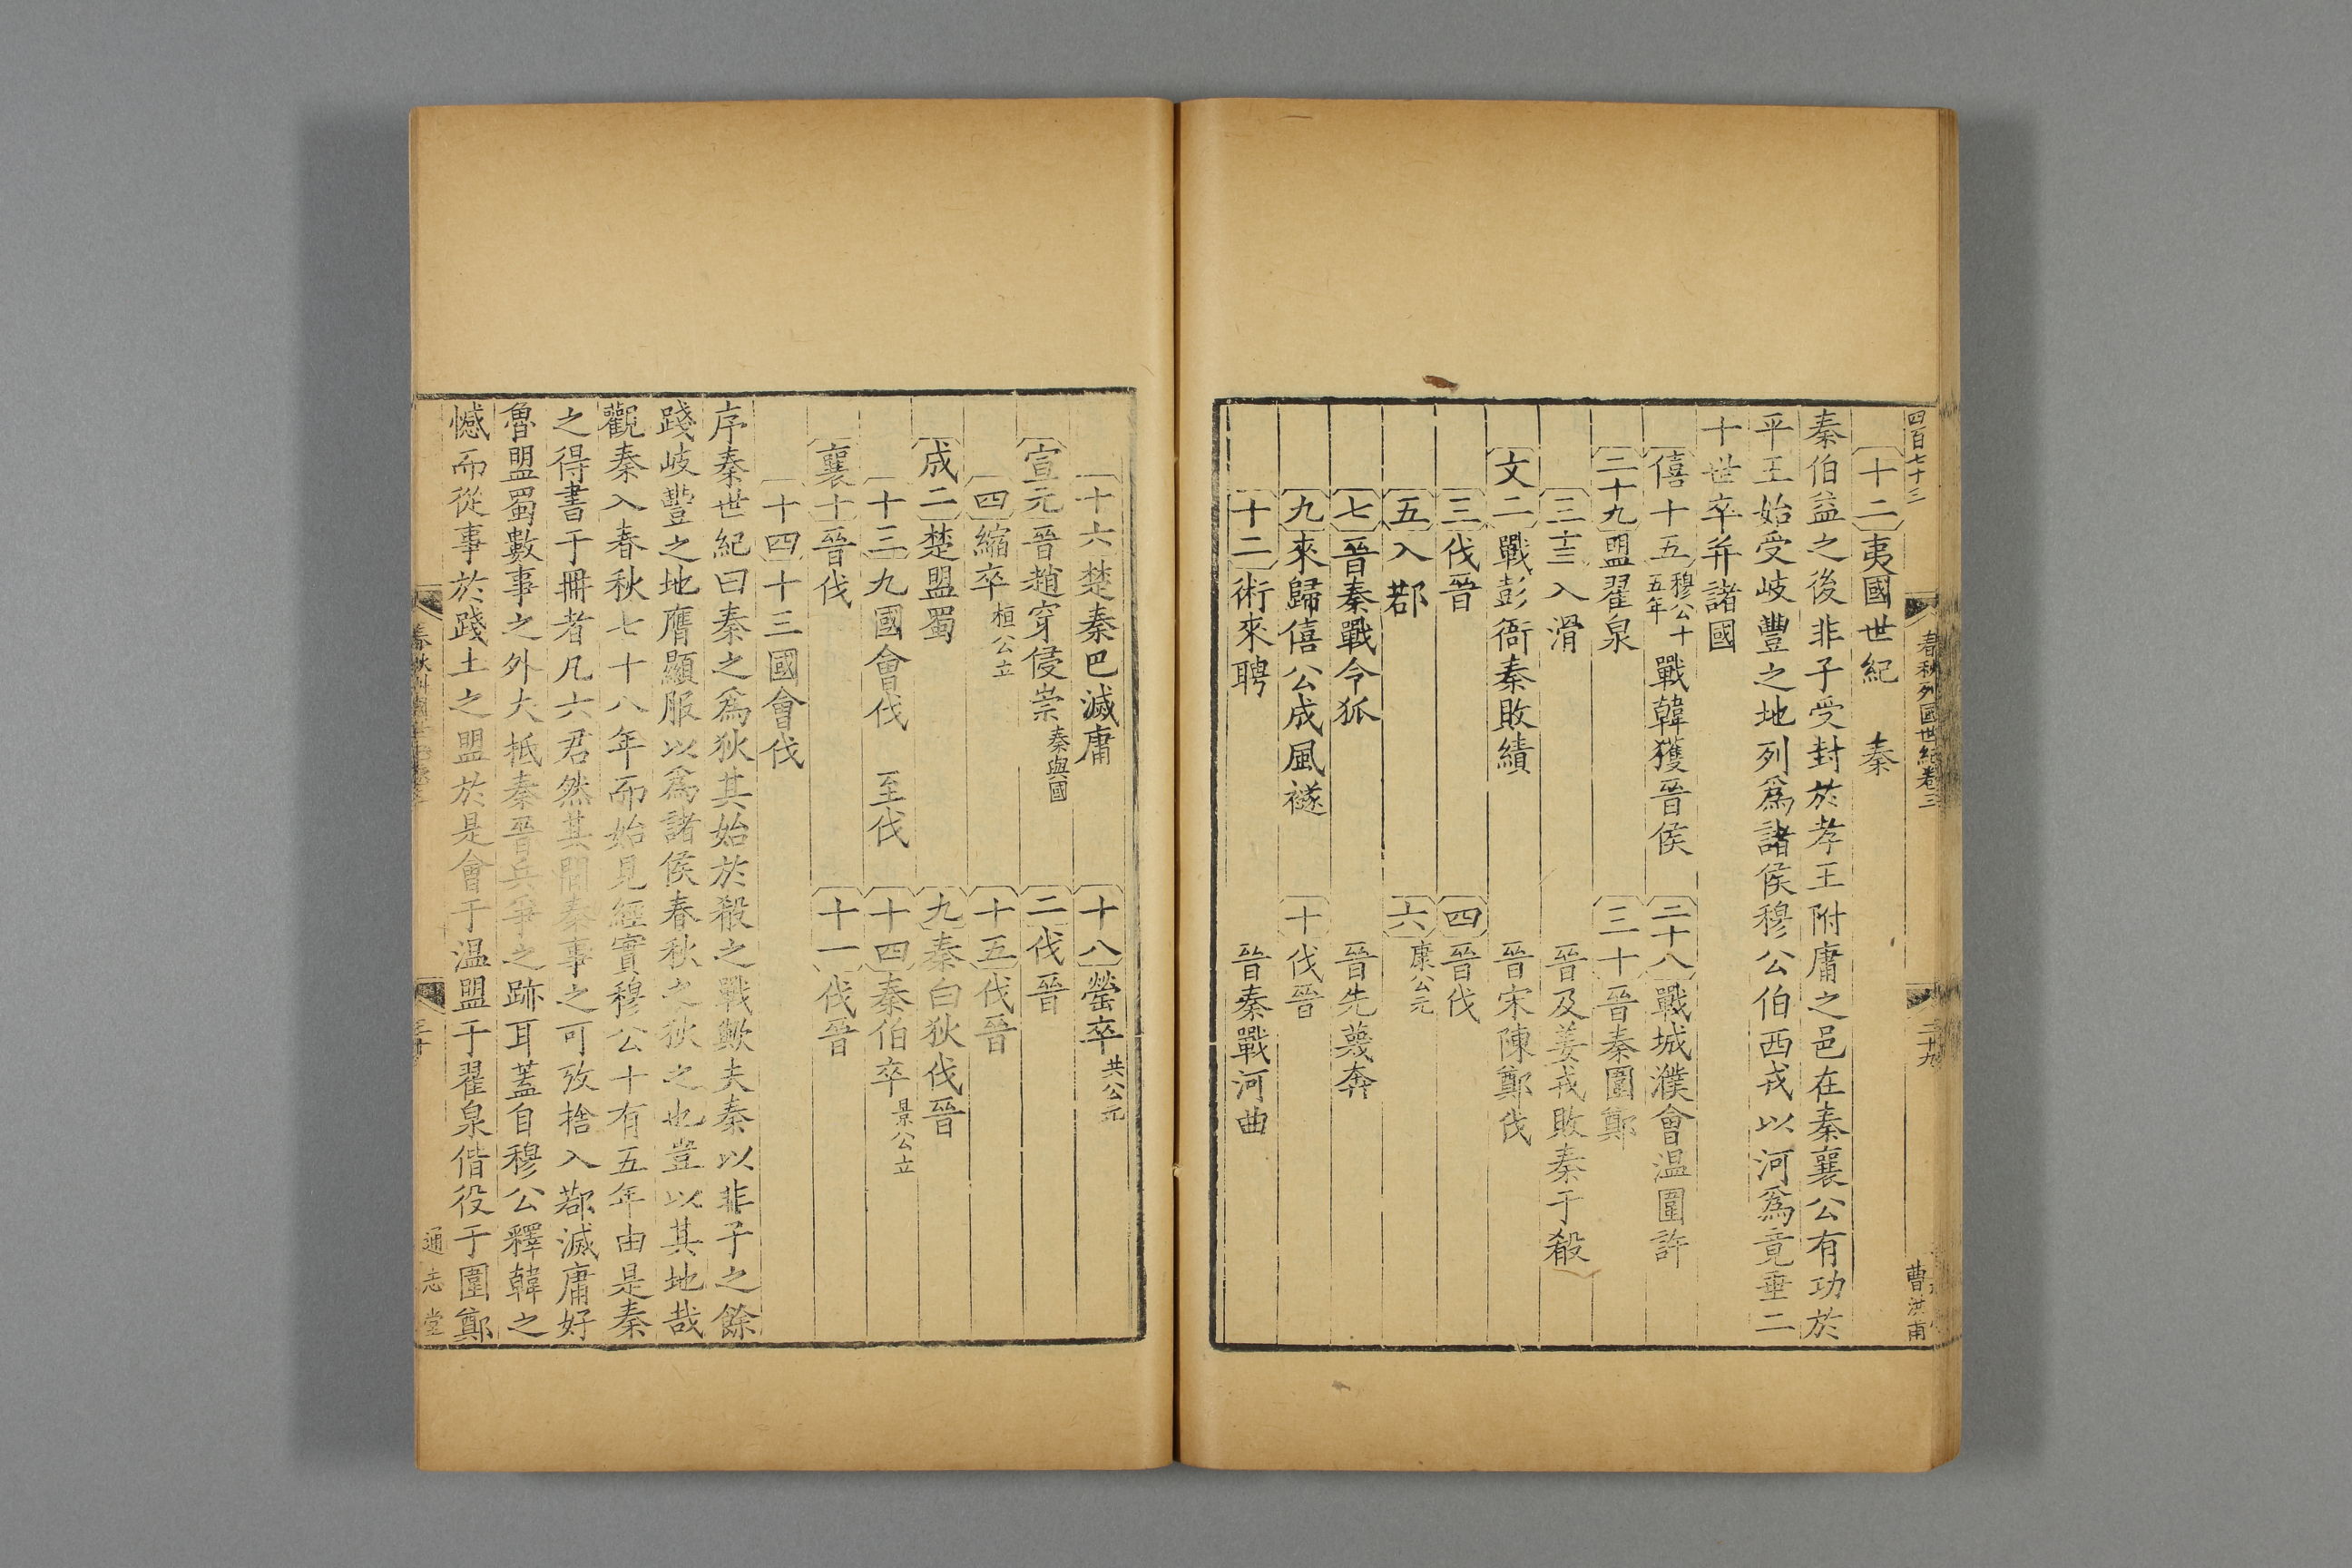 四百七十三
春秋列國世紀卷三
二十九
曹洪甫
十二夷國世紀 秦
秦伯益之後非子受封於孝王附庸之邑在秦襄公有功於
平王始受岐豐之地列爲諸侯穆公伯西戎以河爲竟垂二
十世卒并諸國
僖十五穆公十五年戰韓獲晉侯 二十八戰城濮會温圍許
二十九盟翟泉 三十晉秦圍鄭
三十三入滑 晉及姜戎敗秦于殽
文二戰彭衙秦敗績 晉宋陳鄭伐
三伐晉 四晉伐
五入鄀 六康公元
七晉秦戰令狐 晉先蔑奔
九來歸僖公成風襚 十伐晉
十二術來聘 晉秦戰河曲
十六楚秦巴滅庸 十八罃卒共公元
宣元晉趙穿侵崇秦與國 二伐晉
四縮卒桓公立 十五伐晉
成二楚盟蜀 九秦白狄伐晉
十三九國會伐 至伐 十四秦伯卒景公立
襄十晉伐 十一伐晉
十四十三國會伐
序秦世紀曰秦之爲狄其始於殽之戰歟夫秦以非子之餘
踐岐豐之地膺顯服以爲諸侯春秋之狄之也豈以其地哉
觀秦入春秋七十八年而始見經實穆公十有五年由是秦
之得書于冊者凡六君然其間秦事之可攷捨入鄀滅庸好
魯盟蜀數事之外大抵秦晉兵爭之跡耳蓋自穆公釋韓之
憾而從事於踐土之盟於是會于温盟于翟泉偕役于圍鄭
三十
通志堂